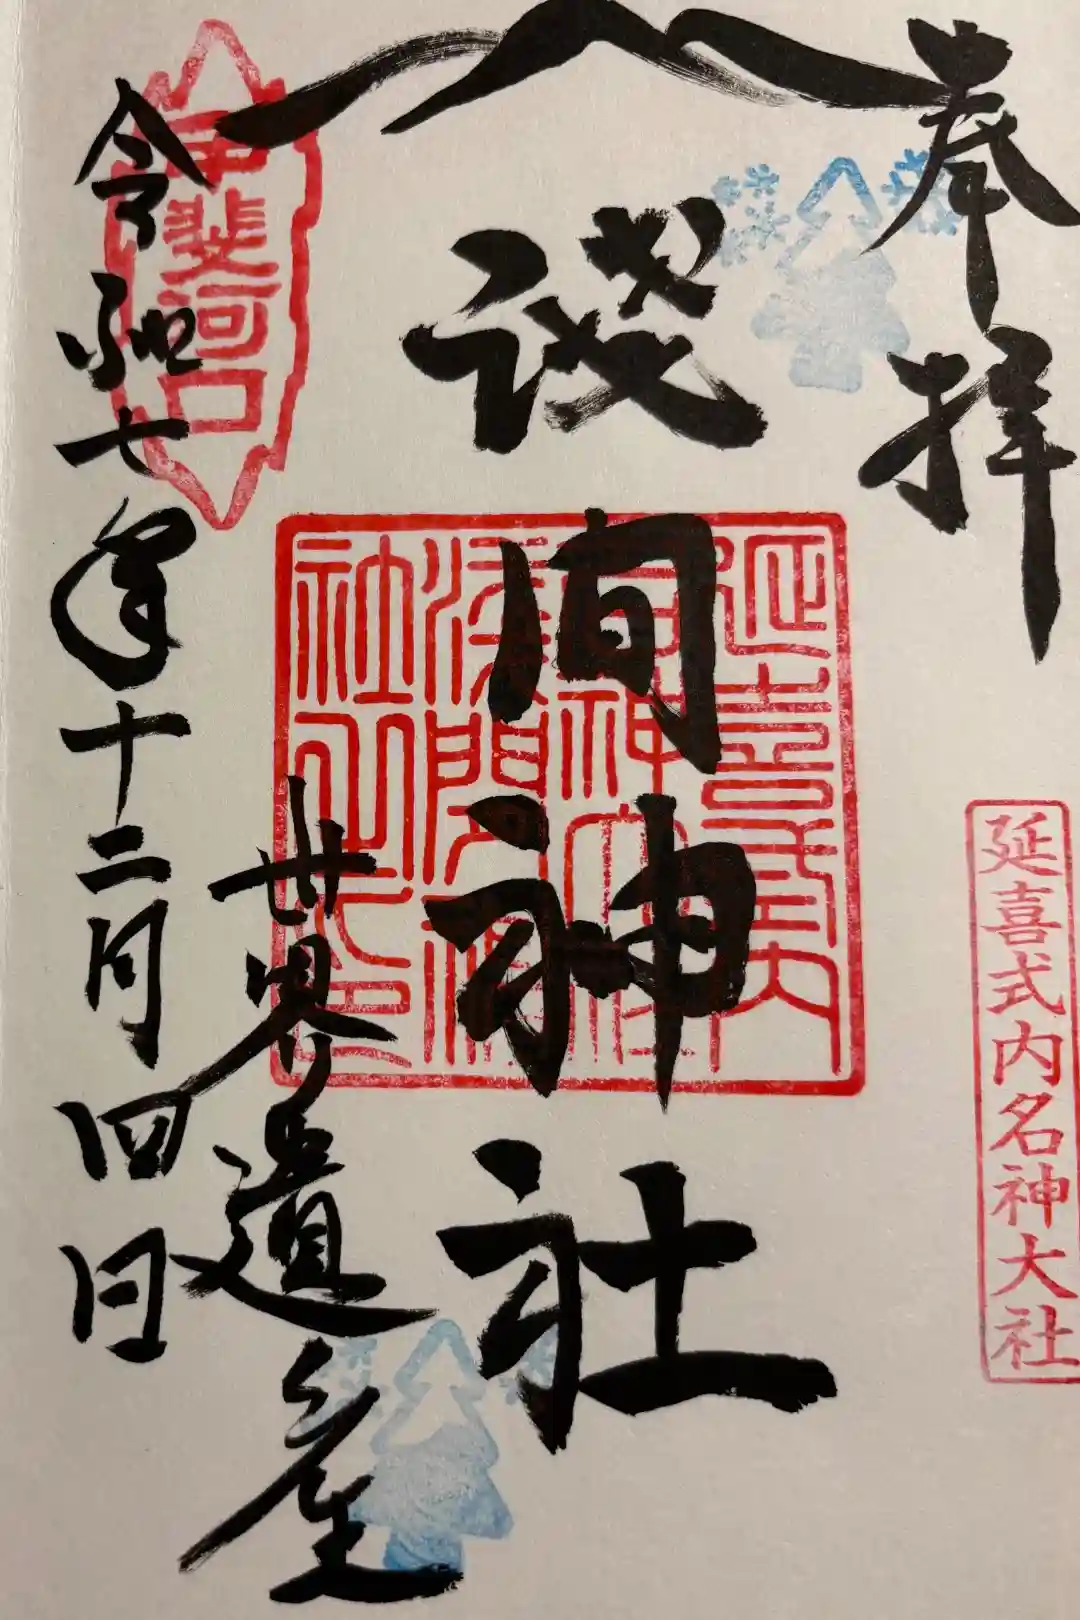 奉拝
延喜式内名神大社
淺間神社
延喜式内
名神大社
社之印
世界遺産
甲斐河口
令和七年十二月四日